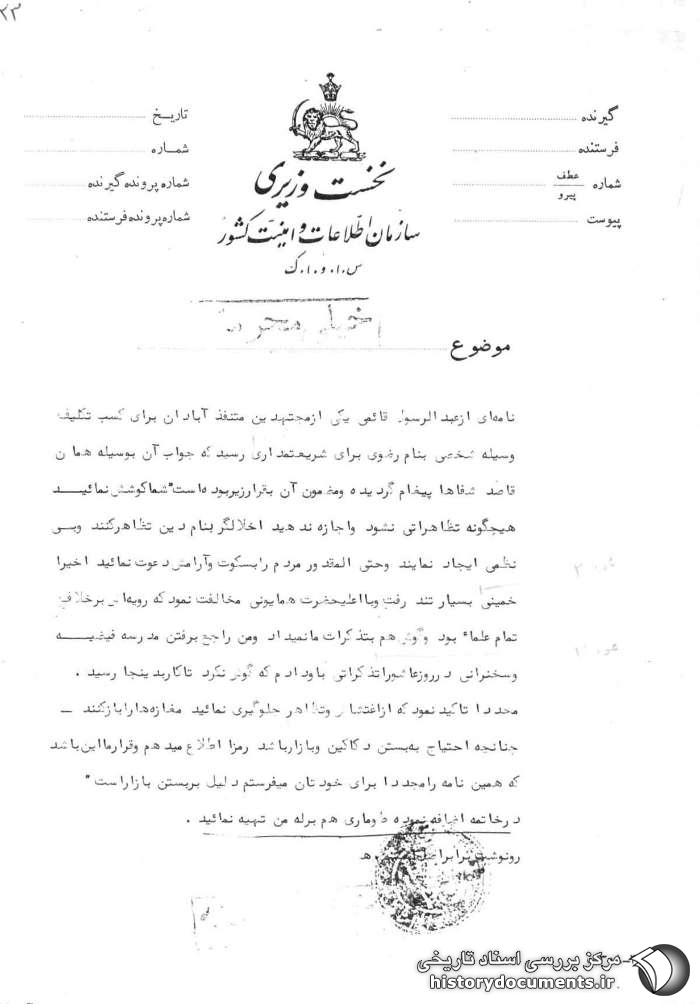 ۲۳
گیرنده
فرستنده
شماره عطف پیرو
پیوست
تاریخ
شماره
شماره پرونده گیرنده
شماره پرونده فرستنده
نخست وزیری
سازمان اطلاعات و امنیت کشور
س.ا.و.ا.ک
خیلی محرمانه
موضوع
نامه‌ای از عبدالرسول قائمی یکی از مجتهدین متنفذ آبادان برای کسب تکلیف
وسیله شخصی بنام رضوی برای شریعتمداری رسید که جواب آن بوسیله همان
قاصد شفاها پیغام گردیده ومضمون آن بقرارزیربوده است "شماکوشش نمائید
هیچگونه تظاهراتی نشود واجازه ندهید اخلالگر بنام دین تظاهرکنند وبی
نظمی ایجاد نمایند وحتی المقدور مردم رابسکوت وآرامش دعوت نمائید اخیرا
خمینی بسیار تند رفت وبااعلیحضرت همایونی مخالفت نمود که رویه‌اش برخلاف
تمام علماء بود وگوش هم بتذکرات ما نمیداد ومن راجع برفتن مدرسه فیضیه
وسخنرانی در روز عاشورا تذکراتی باو دادم که گوش نکرد تا کار بدینجا رسید .
مجددا تاکید نمود که از اغتشاش وتظاهر جلوگیری نمائید مغازه‌ها را بازکنند _
چنانچه احتیاج به‌بستن دکاکین وبازارباشد رمزا اطلاع میدهم وقرارمااین باشد
که همین نامه رامجددا برای خودتان میفرستم دلیل بربستن بازاراست "
درخاتمه اضافه نموده طوماری هم برله من تهیه نمائید .
رونوشت برابر اصل
مرکز بررسی اسناد تاریخی
historydocuments.ir